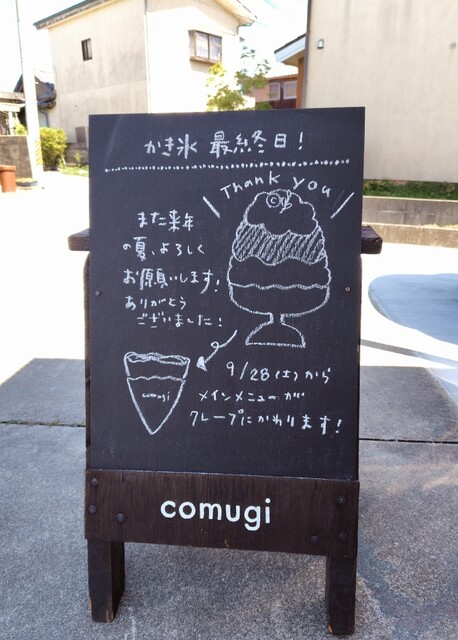 かき氷 最終日!
Thank you
また来年
の夏、よろしく
お願いします!
ありがとう
ございました!
comugi
9/28(土)から
メインメニューが
クレープにかわります!
comugi